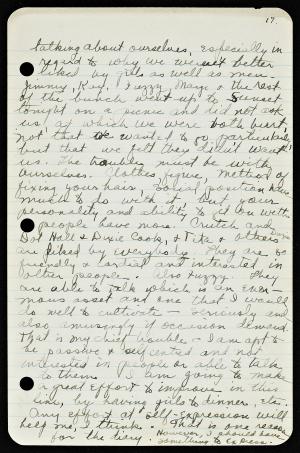 17.
talking about ourselves, especially in
regard to why we weren't better
liked by girls as well as men.
Jimmy, Kay, Fuzzy, Marge & the rest
of the bunch went up to Sunset
tonight on a picnic and did not ask
us, at which we were both hurt,
not that we wanted to go particularly
but that we felt they didn't want
us. The trouble must be with
ourselves. Clothes, figure, method of
fixing your hair, social position have
much to do with it, but your
personality and ability to get on with
people have more. Crutch and
Dot Hall & Dixie Cook, & Tita & others
are liked by everybody. They are so
friendly & and interested in
other people, also Fuzzy. They
are able to talk which is an enor-
mous asset and one that I would
do well to cultivate - seriously and
also amusingly if occasion demand.
That is my chief trouble - I am apt to
be passive & self centred and not
interested in people or able to talk
to them. I am going to make
a great effort to improve in this
line, by having girls to dinner, etc.
Any effort at self-expression will
help me, I think. That is one reason
for the diary. However, I should have
something to express.